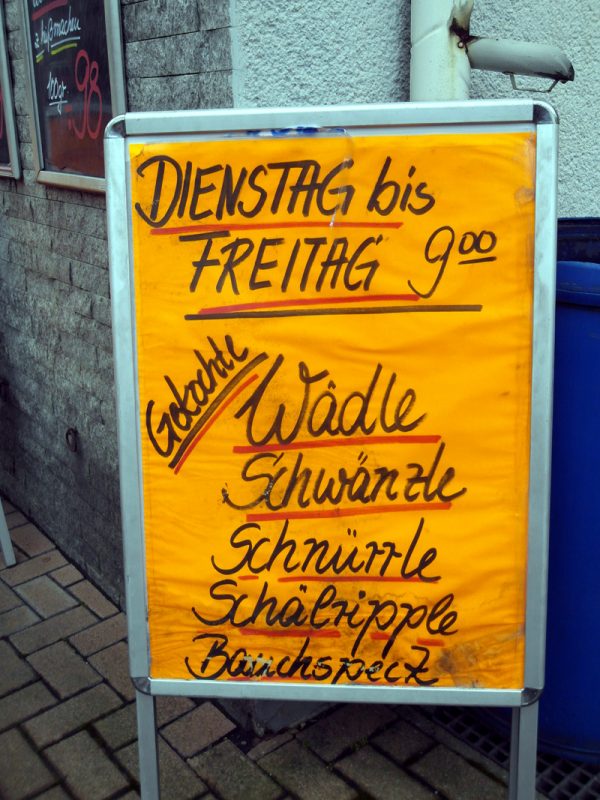 & heißmachen
100gr .98
DIENSTAG bis
FREITAG 9⁰⁰
Gekochte
Wädle
Schwänzle
Schnürrle
Schälripple
Bauchspeck